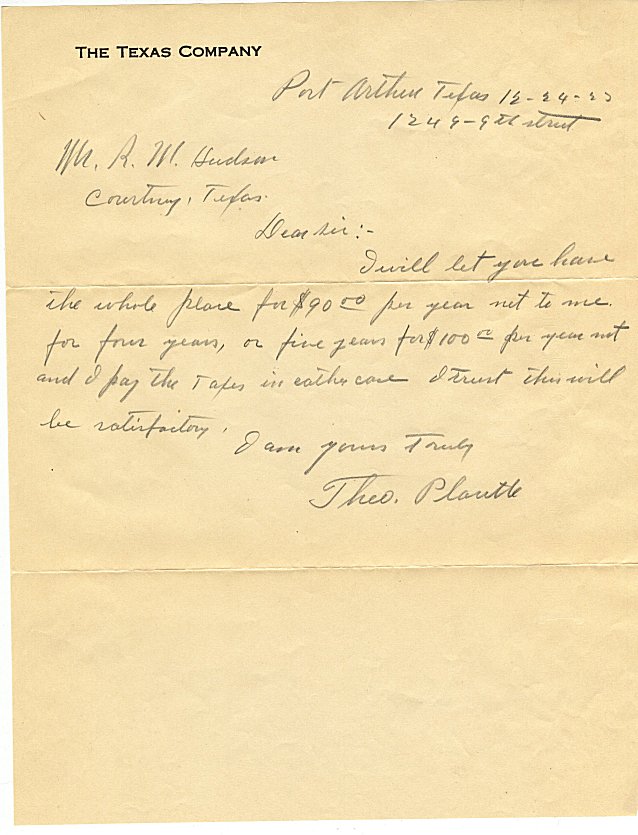 THE TEXAS COMPANY
Port Arthur Texas 12-24-23
1249-9th street
Mr. R. M. Hudson
Courtney, Texas.
Dear sir:-
I will let you have
the whole place for $90 00 per year net to me.
for four years, or five years for $100 00 per year net
and I pay the Taxes in eather case I trust this will
be satisfactory.
I am yours Truly
Theo.